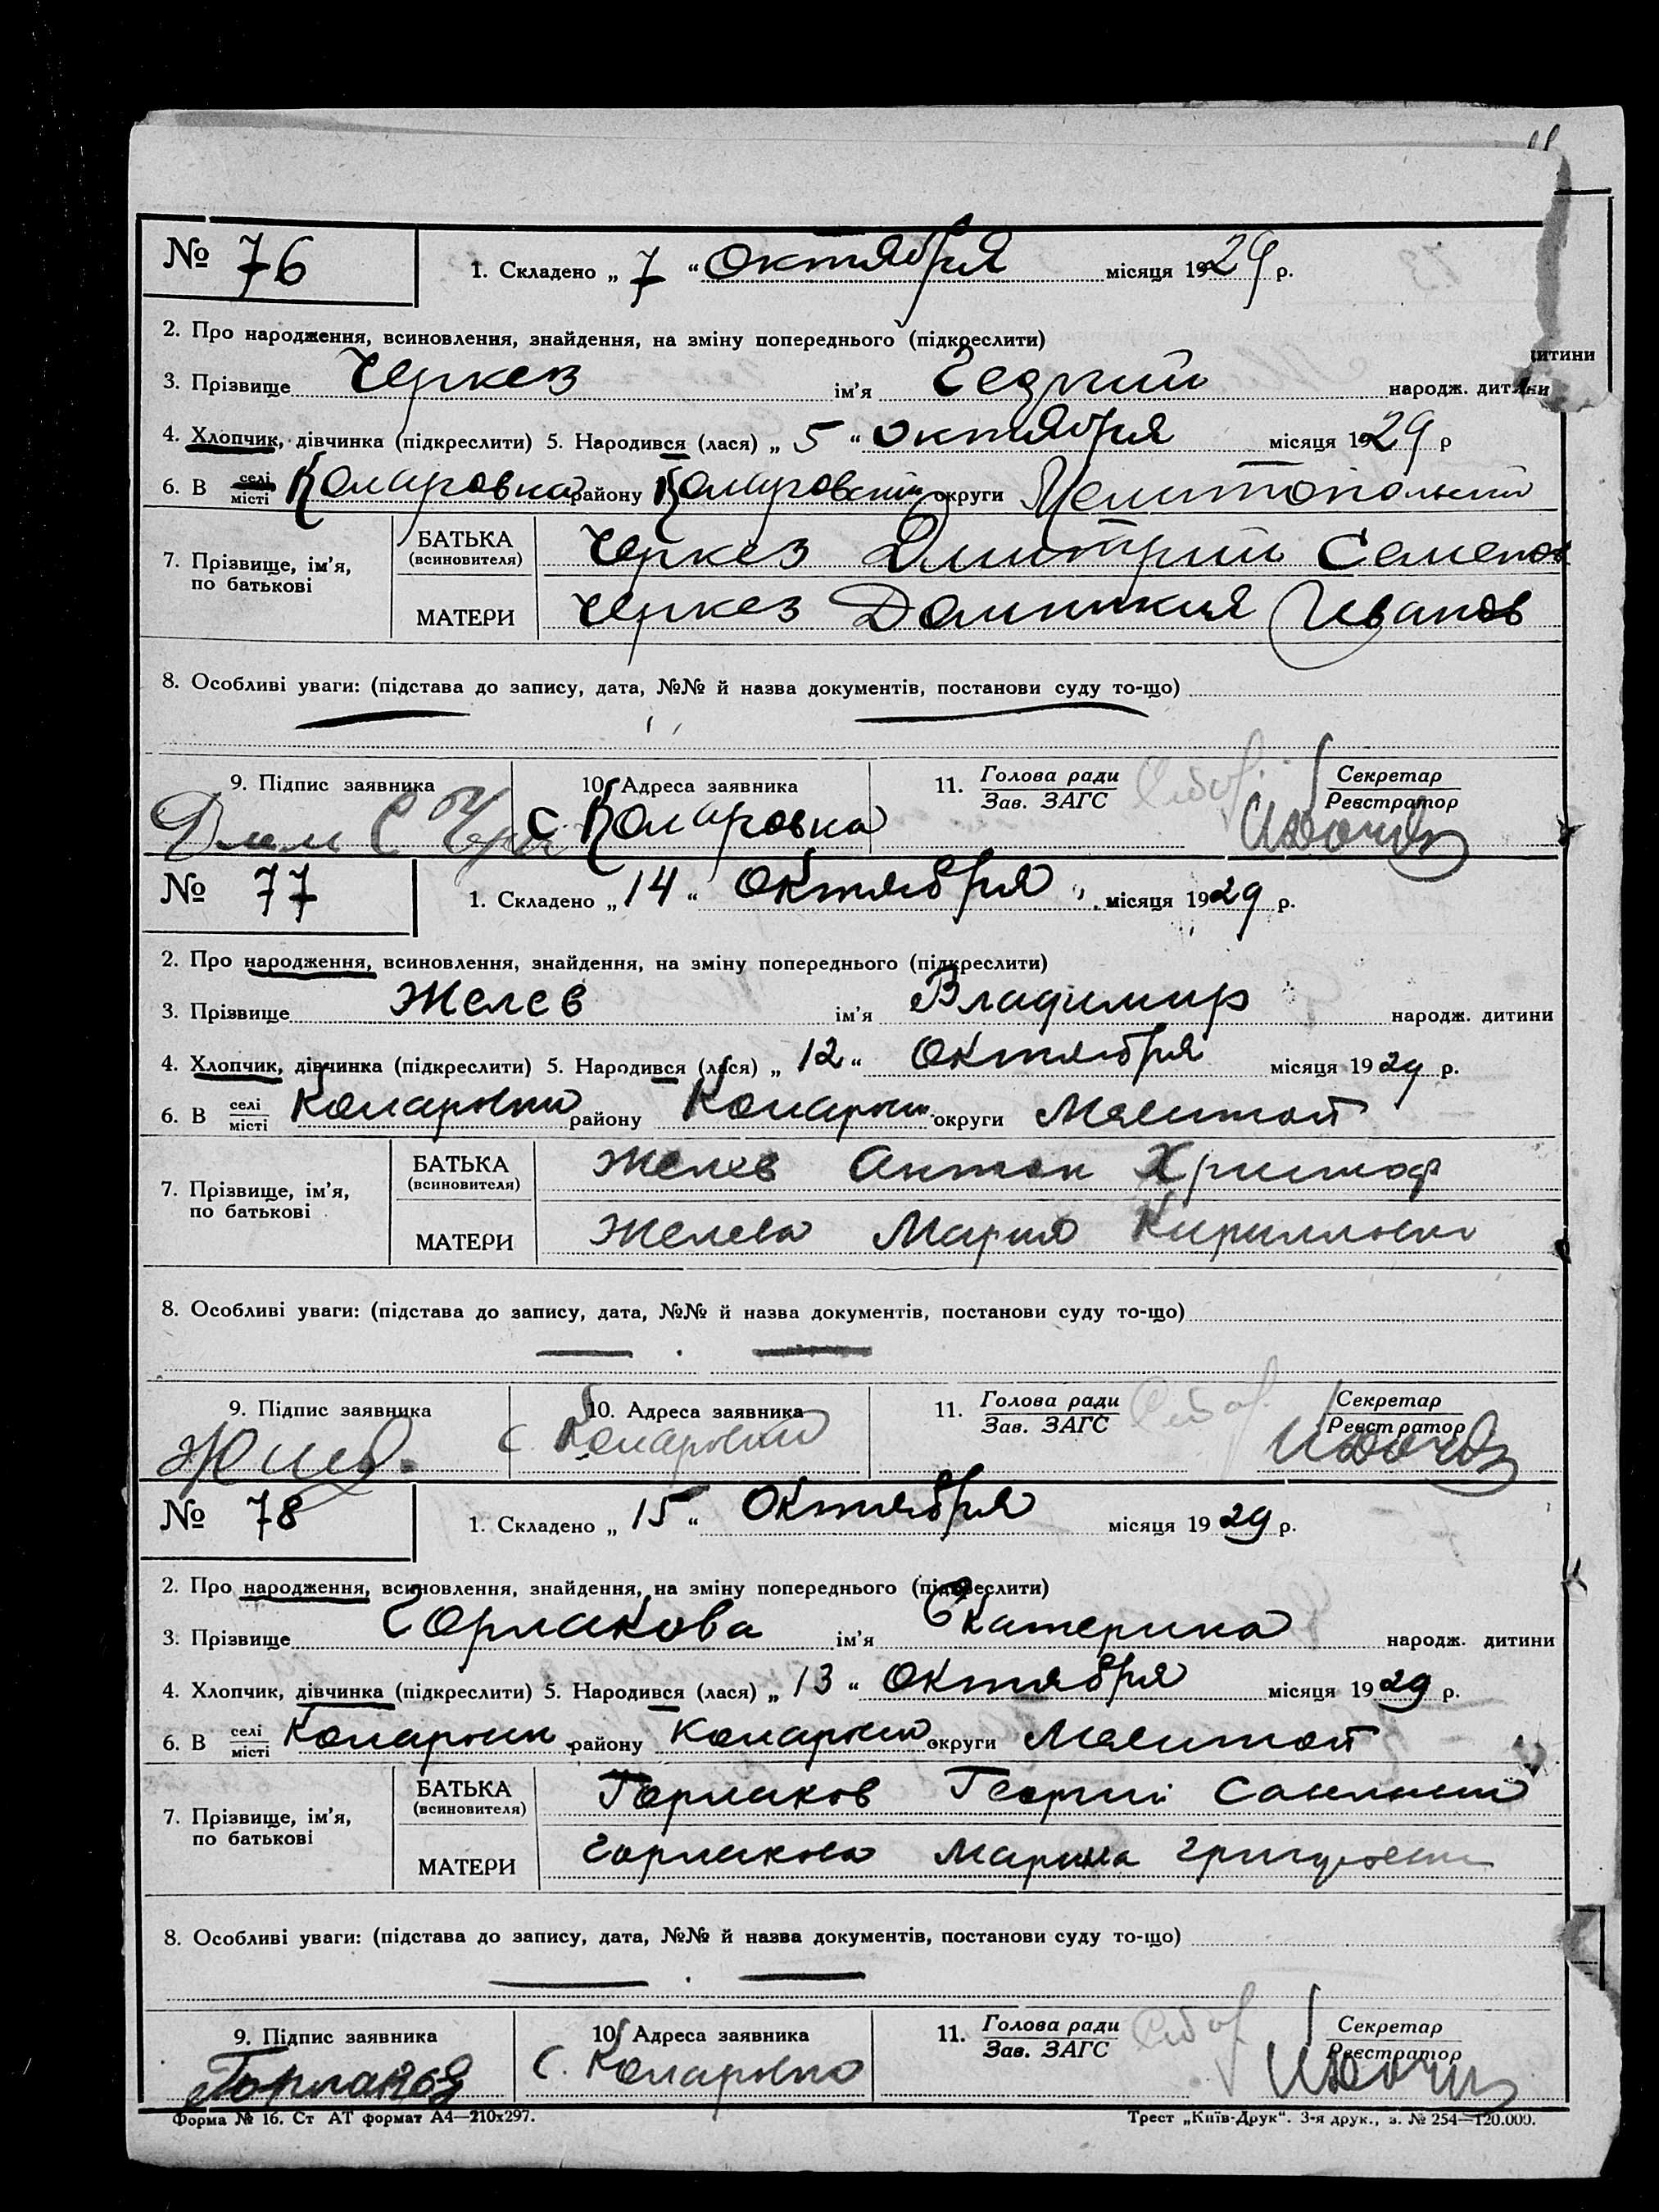 № 76
1. Складено „ 7 “ Октября місяця 1929 р.
2. Про народження, всиновлення, знайдення, на зміну попереднього (підкреслити)
итини
3. Прізвище Черкез ім'я Георгий народж. дитини
4. Хлопчик, дівчинка (підкреслити) 5. Народився (лася) „ 5 “ Октября місяця 1929 р
6. В селі місті Коларовка району Коларовский округи Мелитопольский
7. Прізвище, ім'я, по батькові
БАТЬКА (всиновителя) Черкез Дмитрий Семенов
МАТЕРИ Черкез Домникия Иванов
8. Особливі уваги: (підстава до запису, дата, №№ й назва документів, постанови суду то-що)
9. Підпис заявника 10. Адреса заявника 11. Голова ради Зав. ЗАГС Секретар Реєстратор
С Коларовка
№ 77
1. Складено „ 14 “ Октября місяця 1929 р.
2. Про народження, всиновлення, знайдення, на зміну попереднього (підкреслити)
3. Прізвище Желев ім'я Владимир народж. дитини
4. Хлопчик, дівчинка (підкреслити) 5. Народився (лася) „ 12 “ Октября місяця 1929 р.
6. В селі місті району округи Мелитоп
7. Прізвище, ім'я, по батькові
БАТЬКА (всиновителя) Желев Антон Христоф
МАТЕРИ Желева Мария Кирилловна
8. Особливі уваги: (підстава до запису, дата, №№ й назва документів, постанови суду то-що)
9. Підпис заявника 10. Адреса заявника 11. Голова ради Зав. ЗАГС Секретар Реєстратор
с. Коларовка
№ 78
1. Складено „ 15 “ Октября місяця 1929 р.
2. Про народження, всиновлення, знайдення, на зміну попереднього (підкреслити)
3. Прізвище Горлакова ім'я Екатерина народж. дитини
4. Хлопчик, дівчинка (підкреслити) 5. Народився (лася) „ 13 “ Октября місяця 1929 р.
6. В селі місті району округи Мелитоп
7. Прізвище, ім'я, по батькові
БАТЬКА (всиновителя) Горлаков Георгий
МАТЕРИ Горлакова Марина
8. Особливі уваги: (підстава до запису, дата, №№ й назва документів, постанови суду то-що)
9. Підпис заявника 10. Адреса заявника 11. Голова ради Зав. ЗАГС Секретар Реєстратор
Горлаков С. Коларовка
Форма № 16. Ст АТ формат А4—210x297. Трест „Київ-Друк“. 3-я друк., з. № 254—120.000.